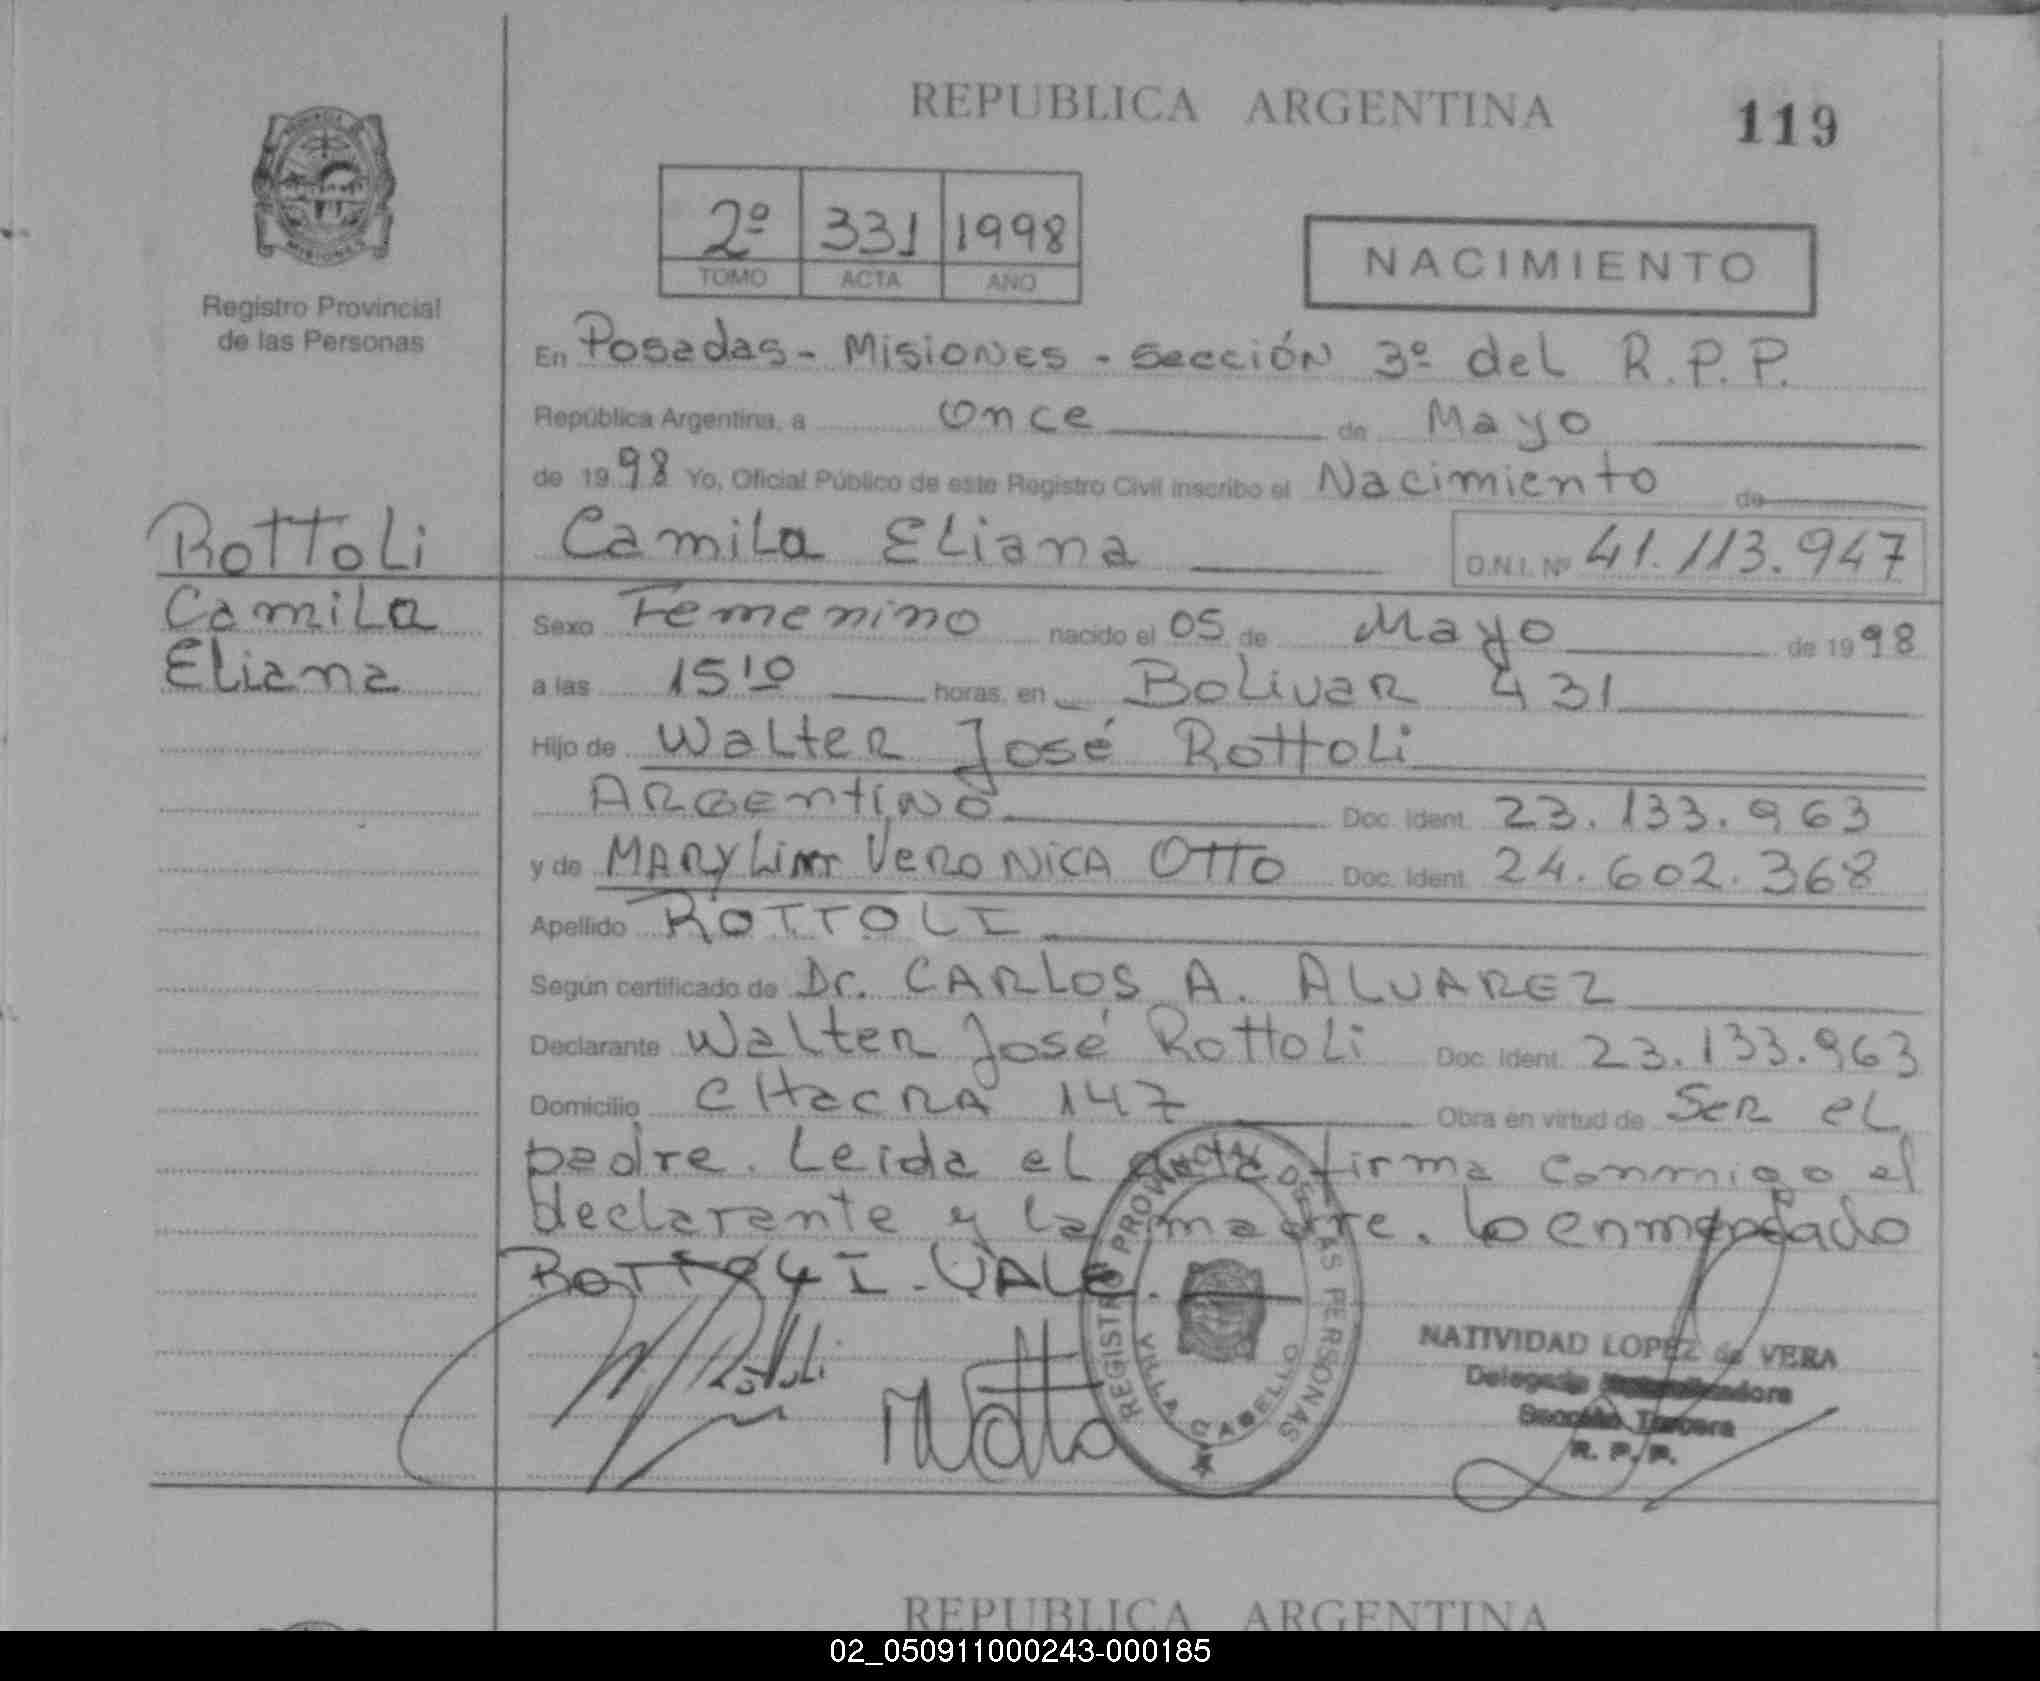 REPUBLICA ARGENTINA
119
2º 331 1998
TOMO ACTA AÑO
NACIMIENTO
Registro Provincial
de las Personas
En Posadas - Misiones - Sección 3º del R.P.P.
República Argentina, a once de Mayo
de 1998 Yo, Oficial Público de este Registro Civil inscribo el Nacimiento de
Rottoli
Camila
Eliana
Camila Eliana D.N.I. Nº 41.113.947
Sexo Femenino nacido el 05 de Mayo de 1998
a las 15:10 horas, en Bolivar 431
Hijo de Walter José Rottoli
Argentino Doc. Ident. 23.133.963
y de MARYLin VERONICA OTTO Doc. Ident. 24.602.368
Apellido ROTTOLI
Según certificado de Dr. CARLOS A. ALVAREZ
Declarante Walter José Rottoli Doc. Ident. 23.133.963
Domicilio CHacRA 147 Obra en virtud de Ser el
padre. Leida el acta firma conmigo el
declarante y la madre. lo enmendado
ROTTOLI - VALE.
Rottoli
REGISTRO PROVINCIAL DE LAS PERSONAS
VILLA CABELLO
NATIVIDAD LOPEZ de VERA
Delegada
Sección Tercera
R. P. P.
REPUBLICA ARGENTINA
02_050911000243-000185